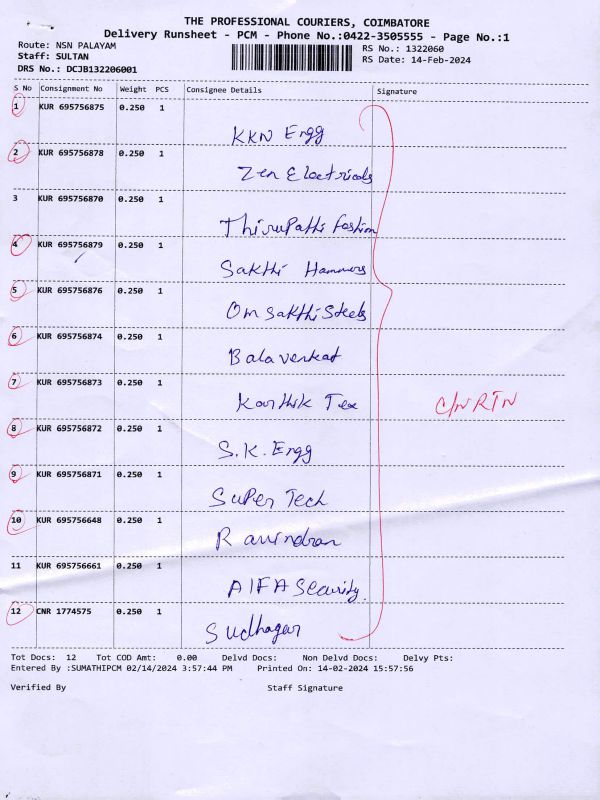 THE PROFESSIONAL COURIERS, COIMBATORE
Delivery Runsheet - PCM - Phone No.:0422-3505555 - Page No.:1
Route: NSN PALAYAM RS No.: 1322060
Staff: SULTAN RS Date: 14-Feb-2024
DRS No.: DCJB132206001
S No Consignment No Weight PCS Consignee Details Signature
1 KUR 695756875 0.250 1
KKN Engg
2 KUR 695756878 0.250 1
Zen Electricals
3 KUR 695756870 0.250 1
Thirupathi fashion
4 KUR 695756879 0.250 1
Sakthi Hammers
5 KUR 695756876 0.250 1
Om Sakthi Steels
6 KUR 695756874 0.250 1
Bala venkat
7 KUR 695756873 0.250 1
Karthik Tex C/N RTN
8 KUR 695756872 0.250 1
S.K. Engg
9 KUR 695756871 0.250 1
Super Tech
10 KUR 695756648 0.250 1
Ravindran
11 KUR 695756661 0.250 1
AlFA Security.
12 CNR 1774575 0.250 1
Sudhagar
Tot Docs: 12 Tot COD Amt: 0.00 Delvd Docs: Non Delvd Docs: Delvy Pts:
Entered By :SUMATHIPCM 02/14/2024 3:57:44 PM Printed On: 14-02-2024 15:57:56
Verified By Staff Signature